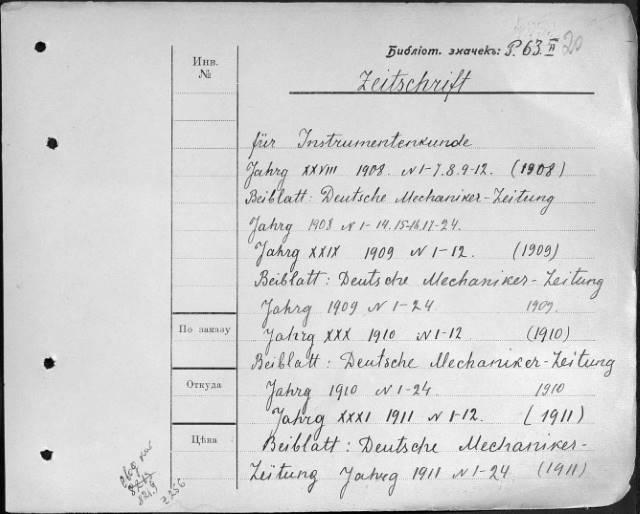 Библiот. значекъ: P. 63. II 20
Zeitschrift
Инв.
№
für Instrumentenkunde
Jahrg XXVIII 1908. N 1-7.8.9-12. (1908)
Beiblatt: Deutsche Mechaniker-Zeitung
Jahrg 1908 N 1-14.15-16.17-24.
Jahrg XXIX 1909 N 1-12. (1909)
Beiblatt: Deutsche Mechaniker-Zeitung
Jahrg 1909 N 1-24 1909.
По заказу
Jahrg XXX 1910 N 1-12 (1910)
Beiblatt: Deutsche Mechaniker-Zeitung
Откуда
Jahrg 1910 N 1-24. 1910
Jahrg XXXI 1911 N 1-12. (1911)
Цѣна
Beiblatt: Deutsche Mechaniker-
Zeitung Jahrg 1911 N 1-24 (1911)